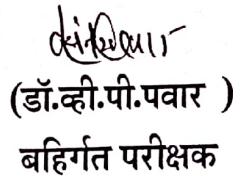 (डॉ.व्ही.पी.पवार )
बहिर्गत परीक्षक